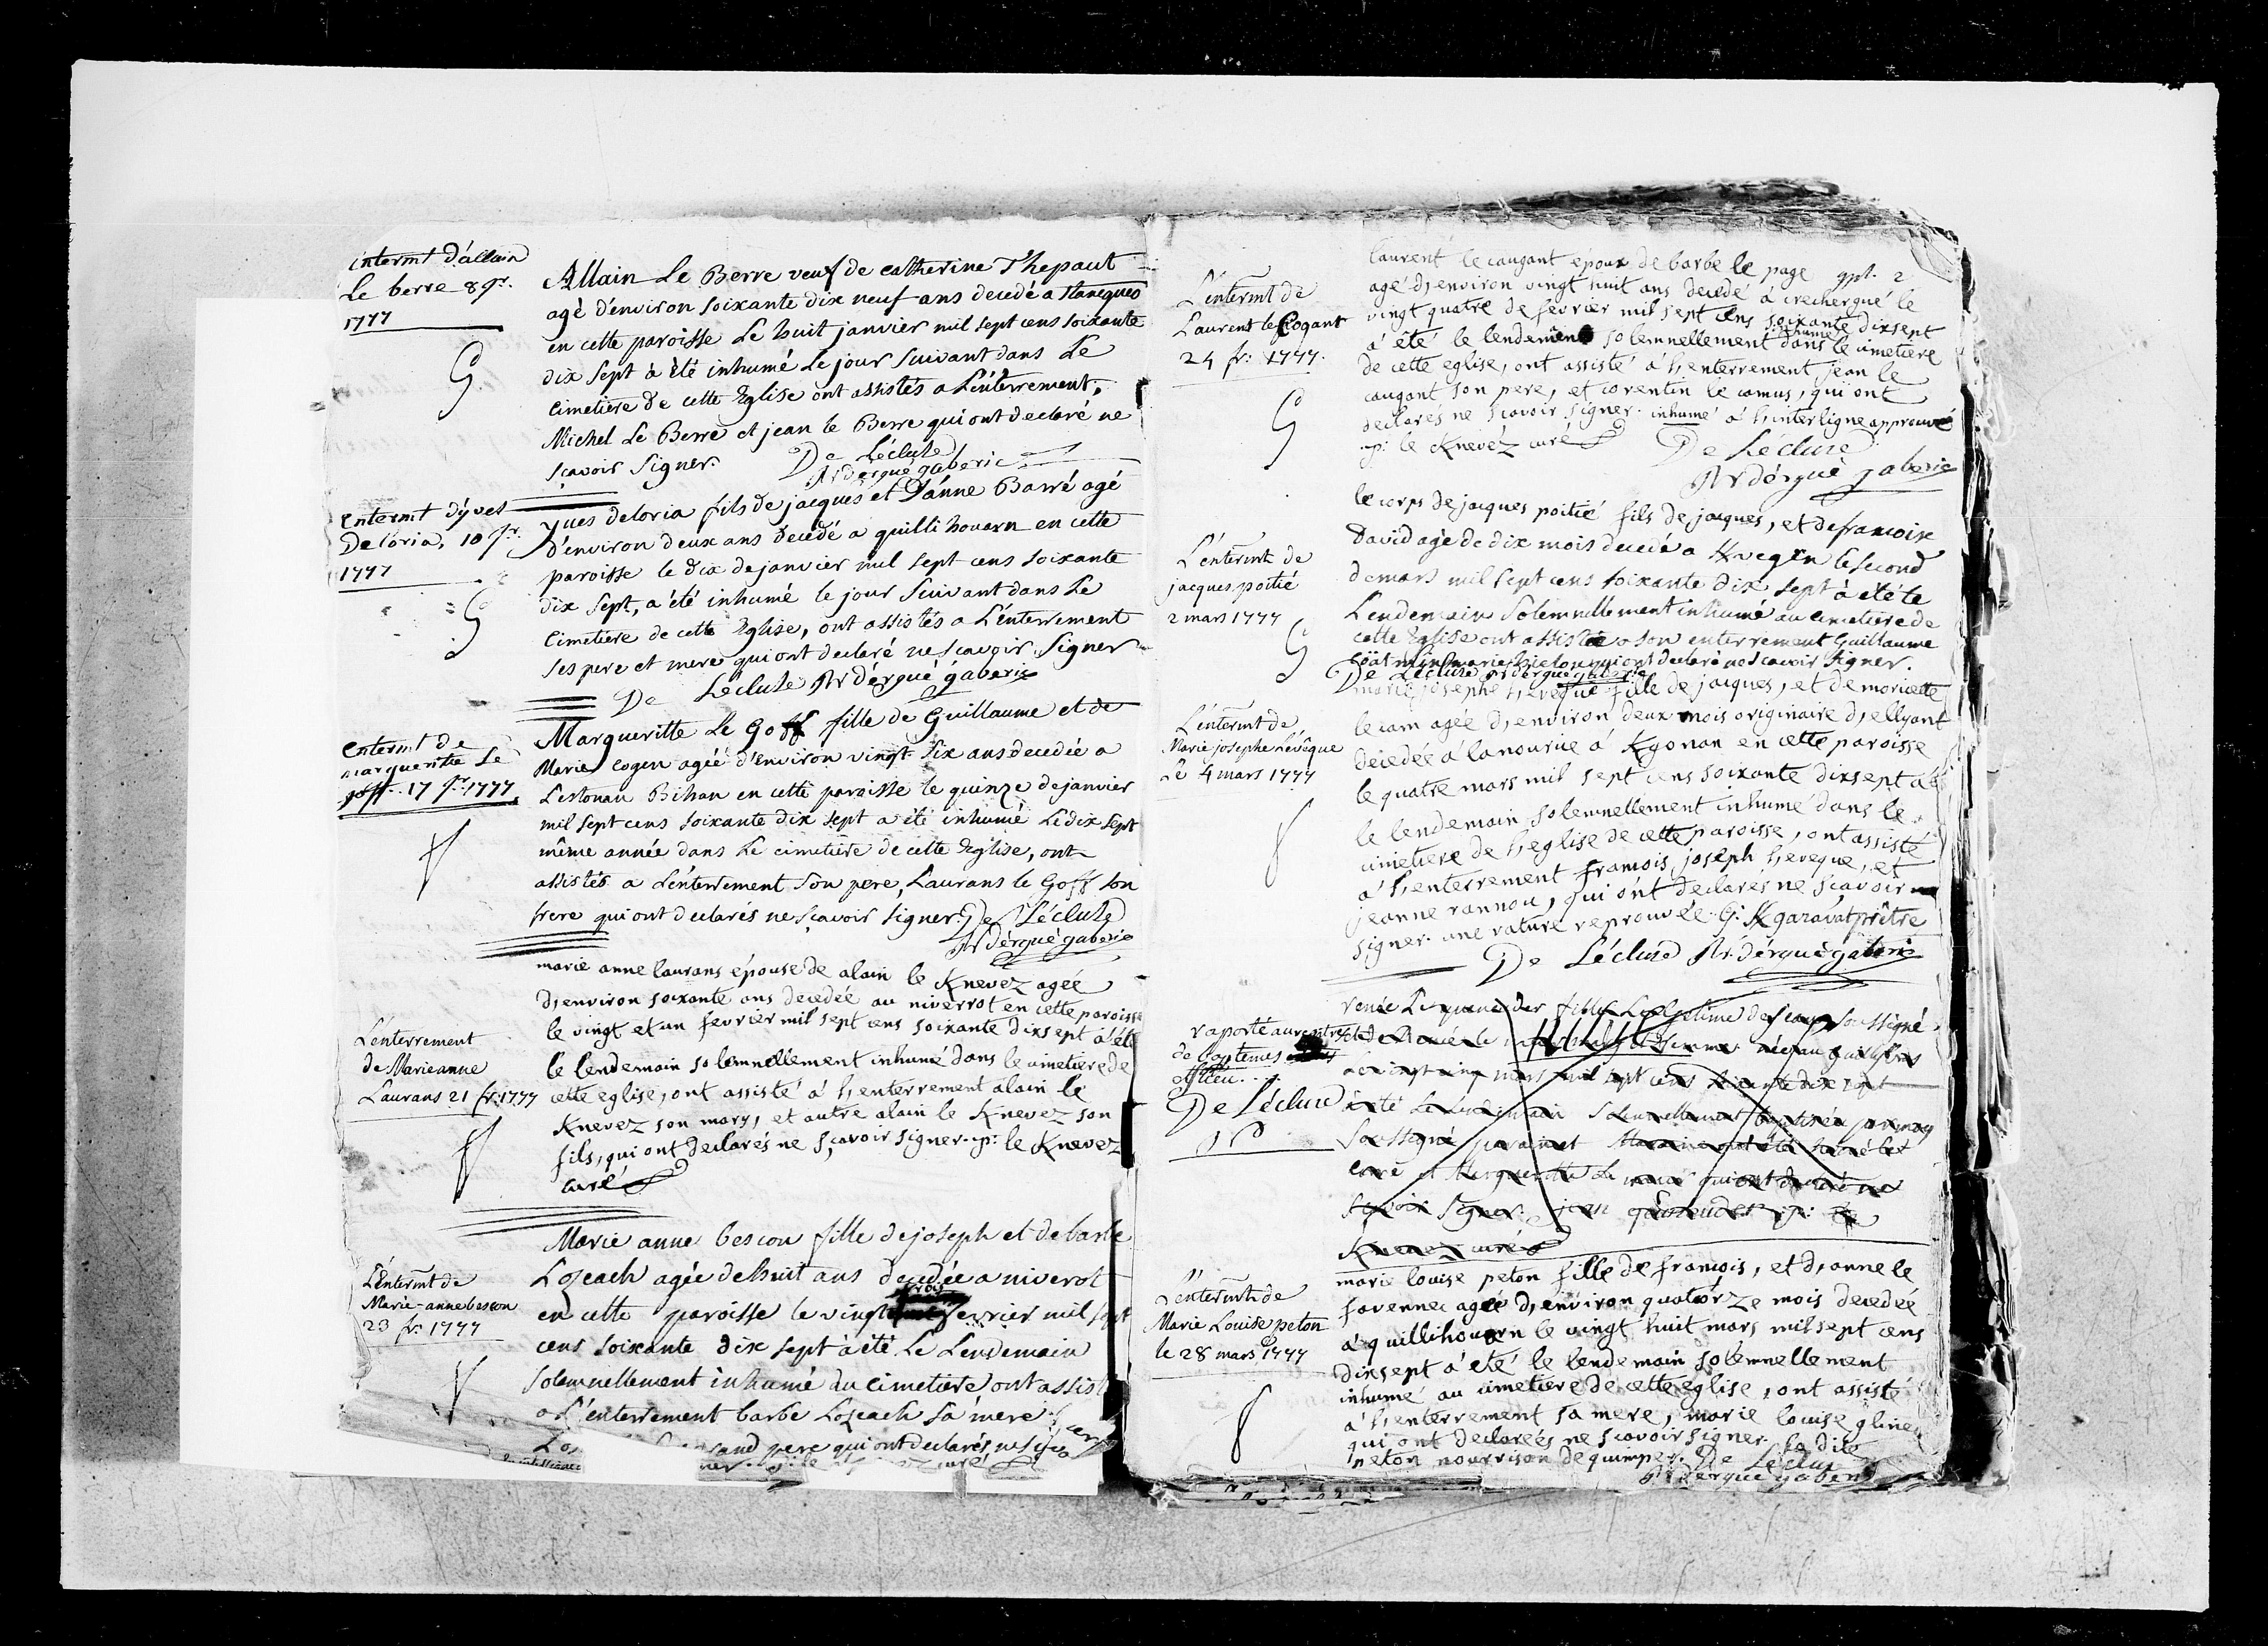 interrmt d'allain
Le berre 8 jr.
1777
Allain Le Berre veuf de catherine Thepaut
agé d'environ soixante dix neuf ans decedé a
en cette paroisse Le huit janvier mil sept cens soixante
dix sept à été inhumé Le jour suivant dans Le
Cimetiere de cette Eglise ont assistés a L'enterrement,
Michel Le Berre et jean le Berre qui ont declaré ne
sçavoir Signer. De Lécluse
Rr dérgué gaberic
enterrmt d'yves
Deloria, 10 jr.
1777
yves deloria fils de jacques et D'anne Barré agé
d'environ deux ans decedé a quilli houarn en cette
paroisse le dix de janvier mil sept cens soixante
dix sept, a été inhumé le jour Suivant dans Le
Cimetiere de cette Eglise, ont assistés a L'enterrement
ses pere et mere qui ont declaré ne scavoir Signer
De Lécluse Rr dérgué gaberic
enterrmt de
marguerite Le
goff. 17 jr. 1777
Margueritte Le Goff fille de Guillaume et de
Marie cogen agéé d'environ vingt six ans decedée a
Lestonan Bihan en cette paroisse le quinze de janvier
mil sept cens soixante dix sept a été inhumé Le dix sept
même année dans Le cimetiere de cette Eglise, ont
assistés a L'enterrement Son pere, Laurans le Goff son
frere qui ont declarés ne sçavoir signer. De Lécluse
Rr dérgué gaberic
L'enterrement
de Marie anne
Laurans 21 fr. 1777
marie anne laurans épouse de alain le Knevez agéé
d'environ soixante ans decedée au niverrot en cette paroisse
le vingt et un fevrier mil sept cens soixante dixsept à été
le lendemain solemnellement inhumé dans le cimetiere de
cette eglise, ont assisté à l'enterrement alain le
Knevez son mary, et autre alain le Knevez son
fils, qui ont declarés ne sçavoir signer. p: le Knevez
curé
L'Enterrmt de
Marie-anne bescon
23 fr. 1777
Marie anne bescon fille de joseph et de barbe
Lozeach agée de huit ans decedée a niverot
trois
en cette paroisse le vingt fevrier mil sept
cens soixante dix sept à été Le Lendemain
solemnellement inhumé au cimetiere ont assis
a L'enterrement barbe Lozeach sa mere
pere qui ont declarés ne
curé
L'enterrmt de
Laurent le Cogant
24 fr: 1777.
laurent le caugant époux de barbe le page gpt. 2
agé d'environ vingt huit ans decedé à crechergué le
vingt quatre de fevrier mil sept cens soixante dixsept
inhumé
à été le lendemein solemnellement dans le cimetiere
de cette eglise, ont assisté à l'enterrement jean le
caugant son pere, et corentin le camus, qui ont
declarés ne scavoir signer. inhumé à l'interligne approuvé
p: le Knevez curé De Lécluse
Rr dérgué gaberic
L'enterrmt de
jacques poitié
2 mars 1777
le corps de jacques poitié fils de jacques, et de francoise
David agé de dix mois decedé a le second
de mars mil sept cens soixante dix sept à été le
Lendemain Solemnellement inhumé au cimetiere de
cette Eglise ont assistés a son enterrement Guillaume
marie qui ont declaré ne scavoir signer.
De Lécluse Rr dérgué gaberic
L'enterrmt de
Marie josephe Lévêque
Le 4 mars 1777
marie josephe l'eveque fille de jacques, et de moricette
le cam agée d'environ deux mois originaire d'ellyant
decedée à la nourice à Kgonan en cette paroisse
le quatre mars mil sept cens soixante dixsept à été
le lendemain solemnellement inhumé dans le
cimetiere de l'eglise de cette paroisse, ont assisté
à l'enterrement francois joseph l'eveque, et
jeanne rannou, qui ont declarés ne scavoir
signer. une rature reprouvée. G: Kgaravat prêtre
De Lécluse Rr. dérgué gaberic
raporté au registre
de baptemes
De Lécluse
Rr
renée fille Legitime
mil sept cens soixante dix sept
à été Le Lendemain Solemnellement baptisée par moy
Soussigné
curé et Marguerite Le qui ont declaré ne
sçavoir signer. jean p: le
Knevez curé
L'enterrmt de
Marie Louise peton
le 28 mars 1777
marie louise peton fille de francois, et d'anne le
favennec agée d'environ quatorze mois decedée
à quillihouarn le vingt huit mars mil sept cens
dixsept à été le lendemain solemnellement
inhumé au cimetiere de cette eglise, ont assisté
à l'enterrement sa mere, marie louise
qui ont declareés ne scavoir signer. la dite
peton nourrison de quimper. De Lécluse
Rr dergué gaberic